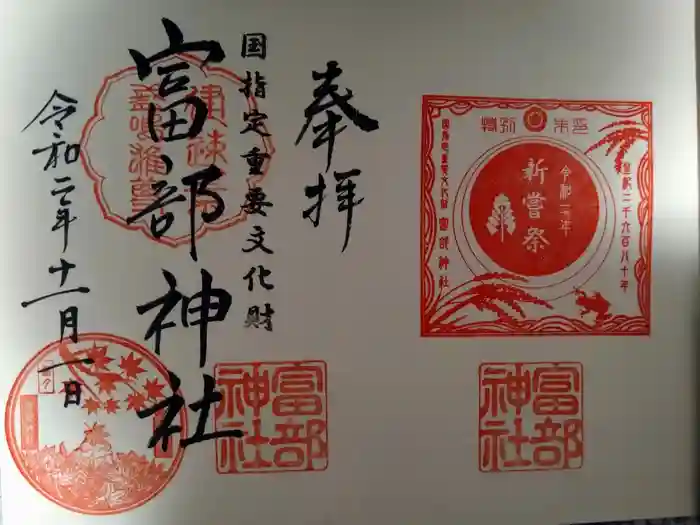 特別朱印
皇紀二千六百八十年
令和二年
新嘗祭
国指定重要文化財 富部神社
富部
神社
奉拝
国指定重要文化財
富部神社
令和二年十一月一日
富部
神社